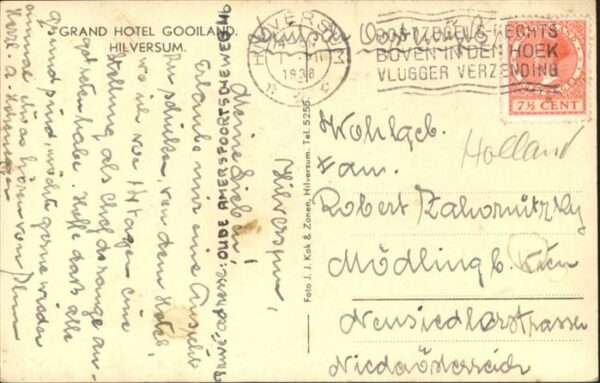 GRAND HOTEL GOOILAND.
HILVERSUM.
HILVERSUM
1938
POSTZEGEL RECHTS
BOVEN IN DEN HOEK
VLUGGER VERZENDING
7½ CENT
Hilversum,
Meine Lieben!
Erlaube mir eine Ansicht
zu schicken, von dem Hotel,
wo ich vor 14 Tagen eine
Stellung als Chef de range an-
getreten habe. Hoffe daß alle
gesund sind, möchte gerne wieder
einmal etwas hören von
OUDE AMERSFOORTSCHEWEG 46
Foto J. J. Kok & Zonen, Hilversum. Tel. 5255.
Wohlgeb.
Fam.
Holland
Robert Zahornitzky
Mödling b. Wien
Neusiedlerstrasse
Niederösterreich